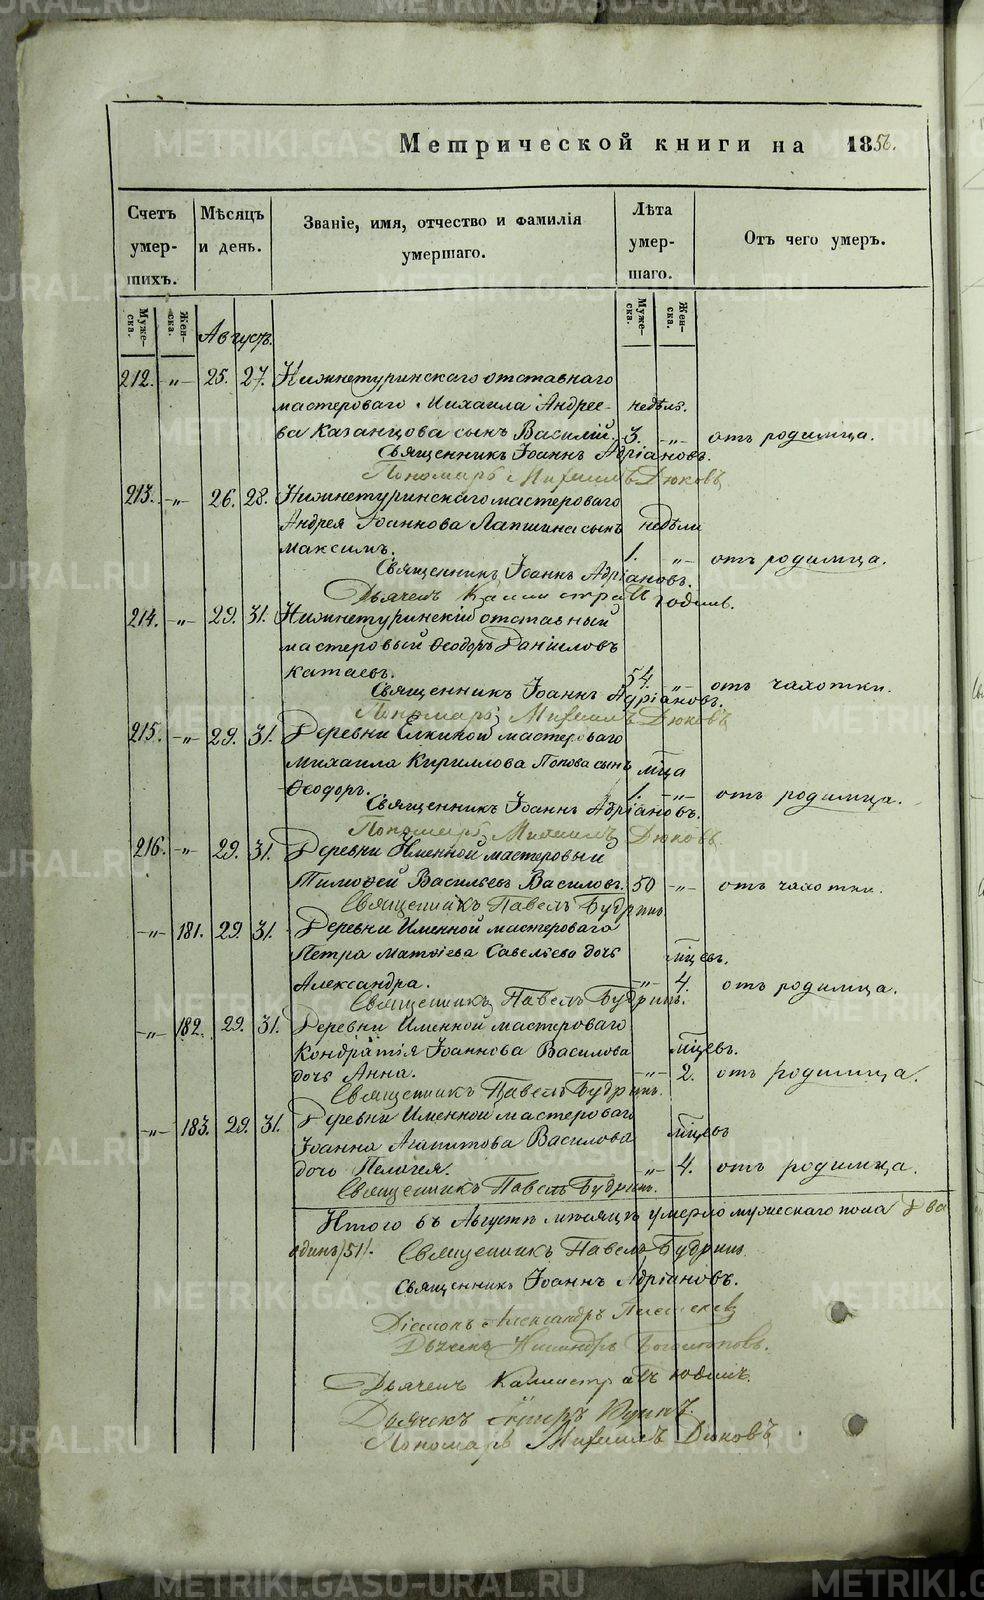 Метрической книги на 1856.
Счетъ умершихъ.
Мѣсяцъ и день.
Званіе, имя, отчество и фамилія умершаго.
Лѣта умершаго.
Отъ чего умеръ.
Мужеска. Женска. Августъ. Мужеска. Женска.
212. -„- 25. 27. Нижнетуринскаго отставнаго
мастероваго Михаила Андрее- недѣль.
ва Казанцова сынъ Василій. 3. -„- отъ родимца.
Священникъ Іоаннъ Адріановъ.
Пономарь Михаилъ Дюковъ
213. -„- 26. 28. Нижнетуринскаго мастероваго
Андрея Іоаннова Лапшина сынъ недѣли
Максимъ. 1. „ отъ родимца.
Священникъ Іоаннъ Адріановъ.
Дьячекъ Каллистратъ
214. -„- 29. 31. Нижнетуринскій отставный
мастеровый Ѳеодоръ Даниловъ
Катаевъ. 54. -„- отъ чахотки.
Священникъ Іоаннъ Адріановъ.
Пономарь Михаилъ Дюковъ
215. -„- 29. 31. Деревни Елкиной мастероваго
Михаила Кириллова Попова сынъ мѣца
Ѳеодоръ. 1. -„- отъ родимца.
Священникъ Іоаннъ Адріановъ.
Пономарь Михаилъ Дюковъ
216. -„- 29. 31. Деревни Именной мастеровый
Тимоѳей Васильевъ Василовъ. 50 -„- отъ чахотки.
Священникъ Павелъ Будринъ
-„- 181. 29. 31. Деревни Именной мастероваго
Петра Матѳіева Савельева дочь мѣцевъ.
Александра. -„- 4. отъ родимца.
Священникъ Павелъ Будринъ.
-„- 182. 29. 31. Деревни Именной мастероваго
Кондратія Іоаннова Василова мѣцевъ.
дочь Анна. -„- 2. отъ родимца.
Священникъ Павелъ Будринъ.
-„- 183. 29. 31. Деревни Именной мастероваго
Іоанна Агапитова Василова мѣцевъ
дочь Пелагея. -„- 4. отъ родимца.
Священникъ Павелъ Будринъ.
Итого въ Августѣ мѣсяцѣ умерло мужескаго пола
одинъ /51/. Священникъ Павелъ Будринъ
Священникъ Іоаннъ Адріановъ.
Діаконъ Александръ
Дьячекъ
Дьячекъ Каллистратъ
Дьячекъ
Пономарь Михаилъ Дюковъ
METRIKI.GASO-URAL.RU